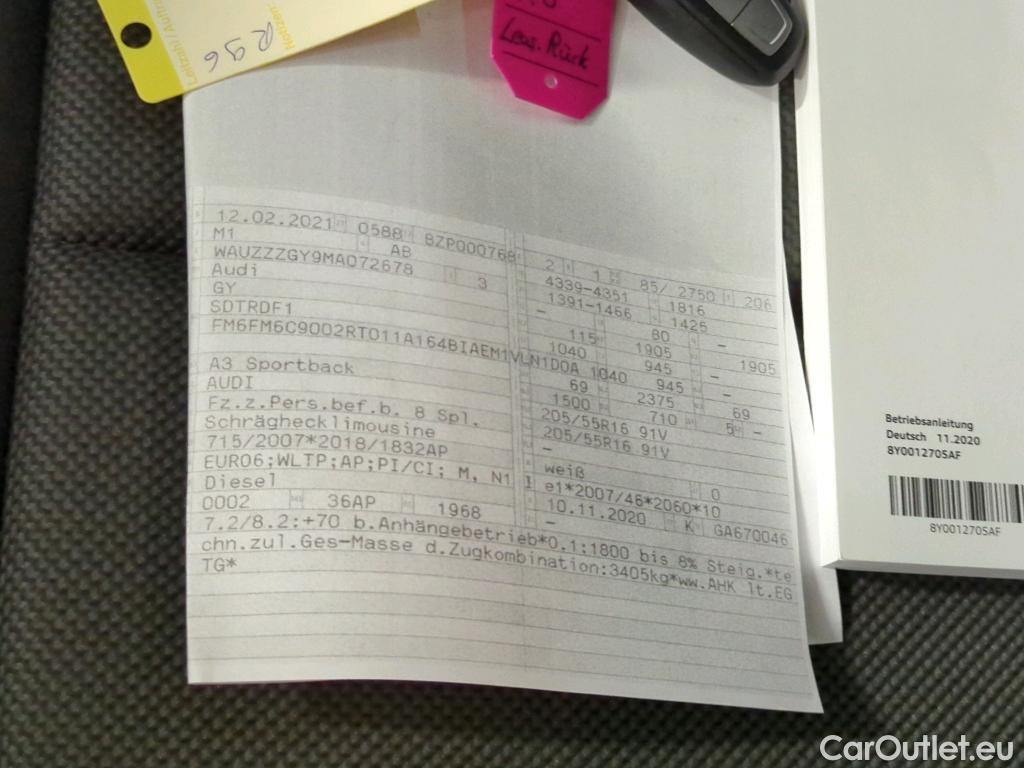 Leitzahl/Auftra
Notizen:
R 96
Leas. Rück
12.02.2021 0588 8ZP000768 2 1 85/ 2750 206
M1 AB 4339-4351 1816
WAUZZZGY9MA072678 3 1391-1466 1425
Audi – 80 –
GY 115 1905 1905
SDTRDF1 1040 945 –
FM6FM6C9002RT011A164BIAEM1VLN1D0A 1040 945 –
69 2375 69
A3 Sportback 1500 710 5 –
AUDI 205/55R16 91V
Fz.z.Pers.bef.b. 8 Spl. 205/55R16 91V
Schräghecklimousine –
715/2007*2018/1832AP weiß 0
EURO6;WLTP;AP;PI/CI; M, N1 I e1*2007/46*2060*10
Diesel 10.11.2020 K GA670046
0002 36AP 1968 –
7.2/8.2:+70 b.Anhängebetrieb*O.1:1800 bis 8% Steig.*te
chn.zul.Ges-Masse d.Zugkombination:3405kg*ww.AHK lt.EG
TG*
Betriebsanleitung
Deutsch 11.2020
8Y0012705AF
8Y0012705AF
CarOutlet.eu